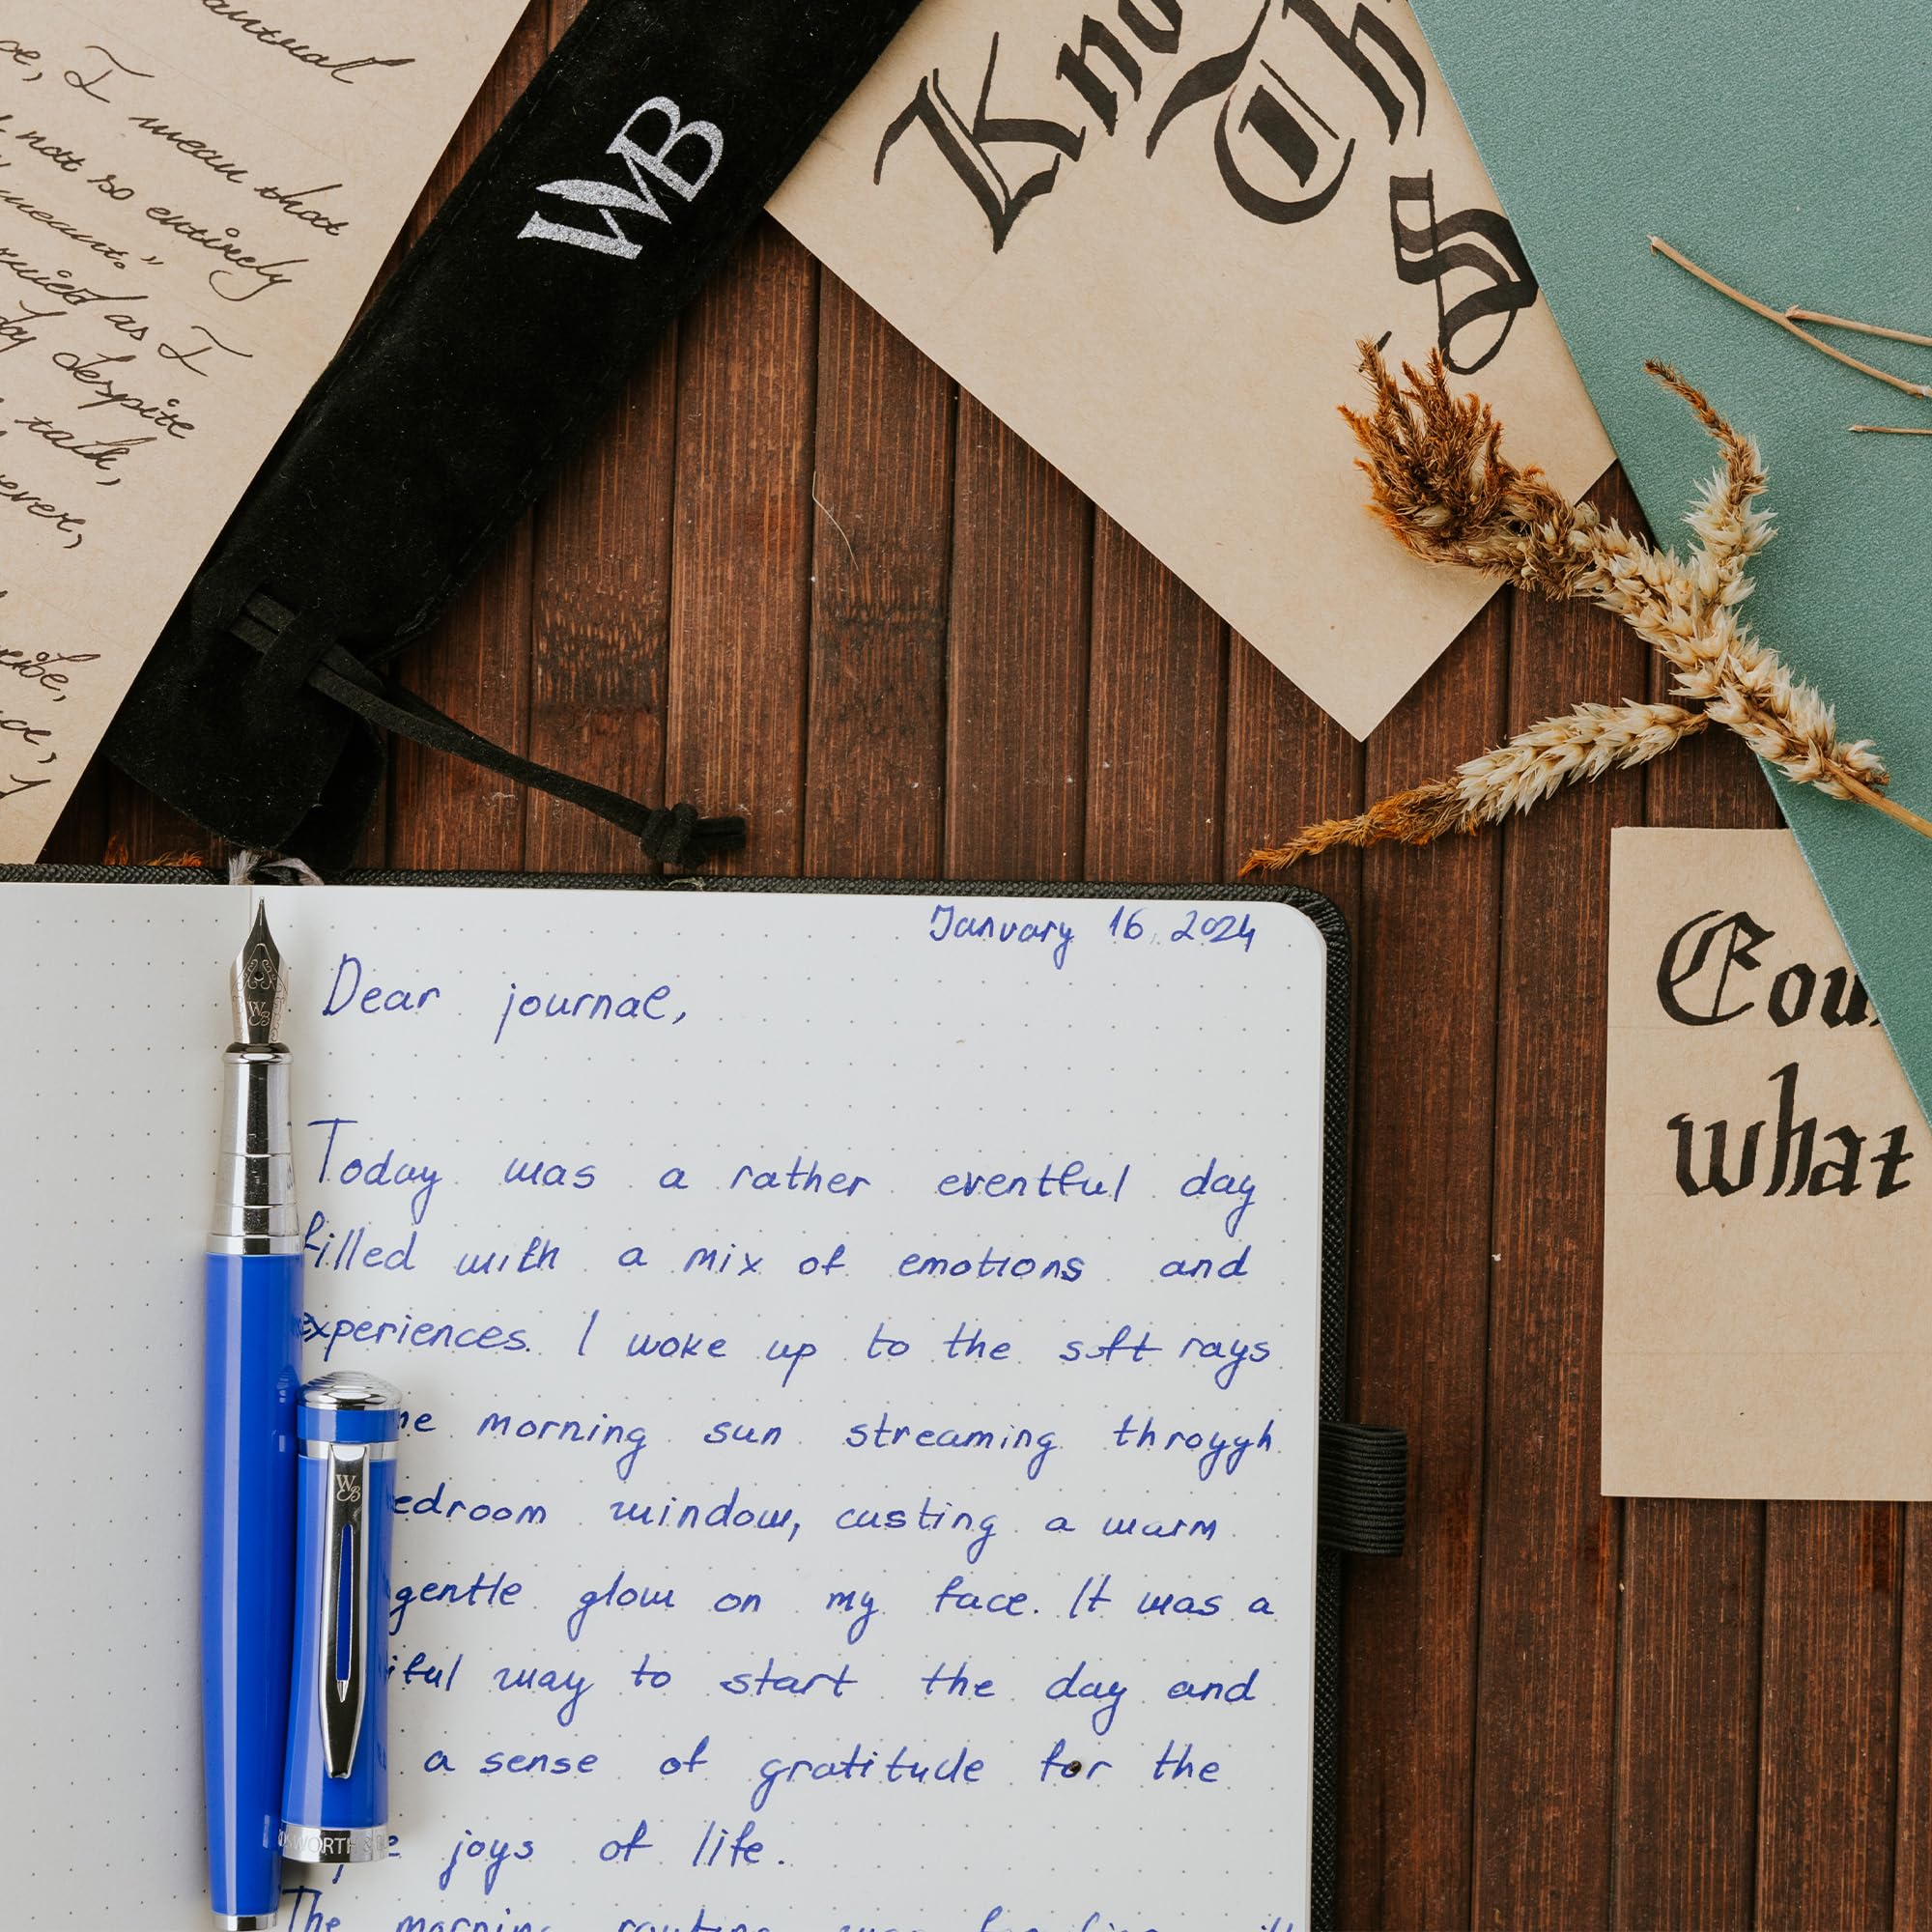 antual
I mean that
not so entirely
meant."
as I
despite
talk,
WB
Kno
Th
S
January 16, 2024
Dear journal,
Today was a rather eventful day
filled with a mix of emotions and
experiences. I woke up to the soft rays
ne morning sun streaming throygh
edroom window, casting a warm
gentle glow on my face. It was a
iful way to start the day and
a sense of gratitude for the
joys of life.
The morning
WB
WB
WORTH
Cou
what